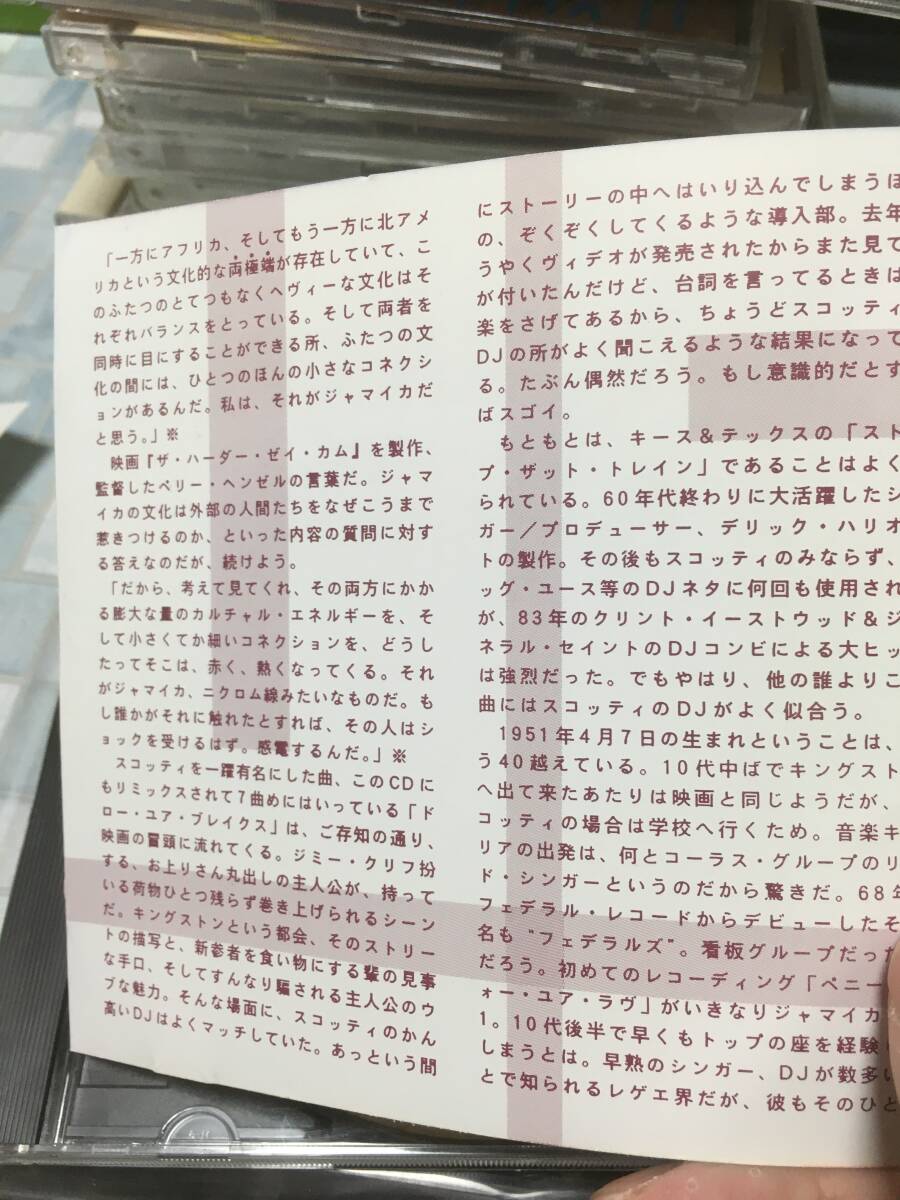 「一方にアフリカ、そしてもう一方に北アメ
リカという文化的な両極端が存在していて、こ
のふたつのとてつもなくヘヴィーな文化はそ
れぞれバランスをとっている。そして両者を
同時に目にすることができる所、ふたつの文
化の間には、ひとつのほんの小さなコネクシ
ョンがあるんだ。私は、それがジャマイカだ
と思う。」※
映画『ザ・ハーダー・ゼイ・カム』を製作、
監督したペリー・ヘンゼルの言葉だ。ジャマ
イカの文化は外部の人間たちをなぜこうまで
惹きつけるのか、といった内容の質問に対す
る答えなのだが、続けよう。
「だから、考えて見てくれ、その両方にかか
る膨大な量のカルチャル・エネルギーを、そ
して小さくてか細いコネクションを、どうし
たってそこは、赤く、熱くなってくる。それ
がジャマイカ、ニクロム線みたいなものだ。も
し誰かがそれに触れたとすれば、その人はシ
ョックを受けるはず。感電するんだ。」※
スコッティを一躍有名にした曲、このCDに
もリミックスされて7曲めにはいっている「ド
ロー・ユア・ブレイクス」は、ご存知の通り、
映画の冒頭に流れてくる。ジミー・クリフ扮
する、お上りさん丸出しの主人公が、持って
いる荷物ひとつ残らず巻き上げられるシーン
だ。キングストンという都会、そのストリー
トの描写と、新参者を食い物にする輩の見事
な手口、そしてすんなり騙される主人公のウ
ブな魅力。そんな場面に、スコッティのかん
高いDJはよくマッチしていた。あっという間
にストーリーの中へはいり込んでしまうほ
の、ぞくぞくしてくるような導入部。去年
うやくヴィデオが発売されたからまた見て
が付いたんだけど、台詞を言ってるときは
楽をさげてあるから、ちょうどスコッティ
DJの所がよく聞こえるような結果になって
る。たぶん偶然だろう。もし意識的だとす
ばスゴイ。
もともとは、キース&テックスの「スト
プ・ザット・トレイン」であることはよく
られている。60年代終わりに大活躍したシ
ガー/プロデューサー、デリック・ハリオ
トの製作。その後もスコッティのみならず、
ッグ・ユース等のDJネタに何回も使用され
が、83年のクリント・イーストウッド&ジ
ネラル・セイントのDJコンビによる大ヒッ
は強烈だった。でもやはり、他の誰よりこ
曲にはスコッティのDJがよく似合う。
1951年4月7日の生まれということは、
う40越えている。10代中ばでキングスト
へ出て来たあたりは映画と同じようだが、
コッティの場合は学校へ行くため。音楽キ
リアの出発は、何とコーラス・グループのリ
ド・シンガーというのだから驚きだ。68年
フェデラル・レコードからデビューしたそ
名も“フェデラルズ”。看板グループだった
だろう。初めてのレコーディング「ペニー
ォー・ユア・ラヴ」がいきなりジャマイカ
1。10代後半で早くもトップの座を経験
しまうとは。早熟のシンガー、DJが数多い
とで知られるレゲエ界だが、彼もそのひと